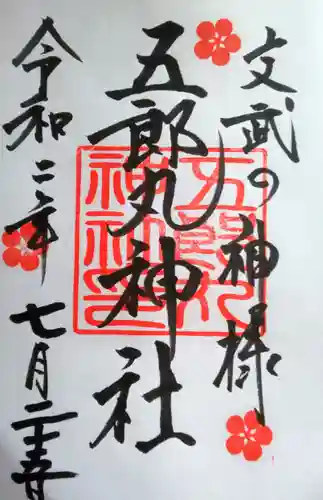 文武の神様
五郎丸神社
五郎丸
神社印
令和二年七月二十